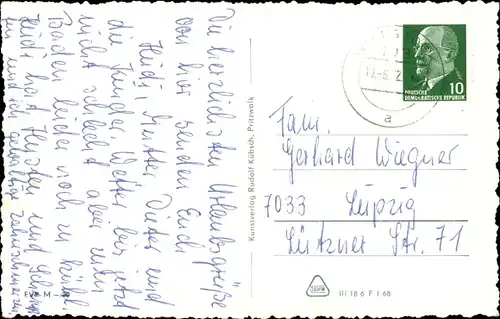 Die herzlichsten Urlaubsgrüße
von hier senden Euch
Heidi, Mutter, Dieter und
die Kinder. Wetter bis jetzt
nicht schlecht aber zum
Baden leider noch zu kühl.
Heidi hat Husten und
EVP M
Kunstverlag Rudolf Kübsch, Pritzwalk
10
DEUTSCHE
DEMOKRATISCHE REPUBLIK
a
Fam.
Gerhard Wiegner
7033 Leipzig
Lützner Str. 71
III 18 6 F 1 68